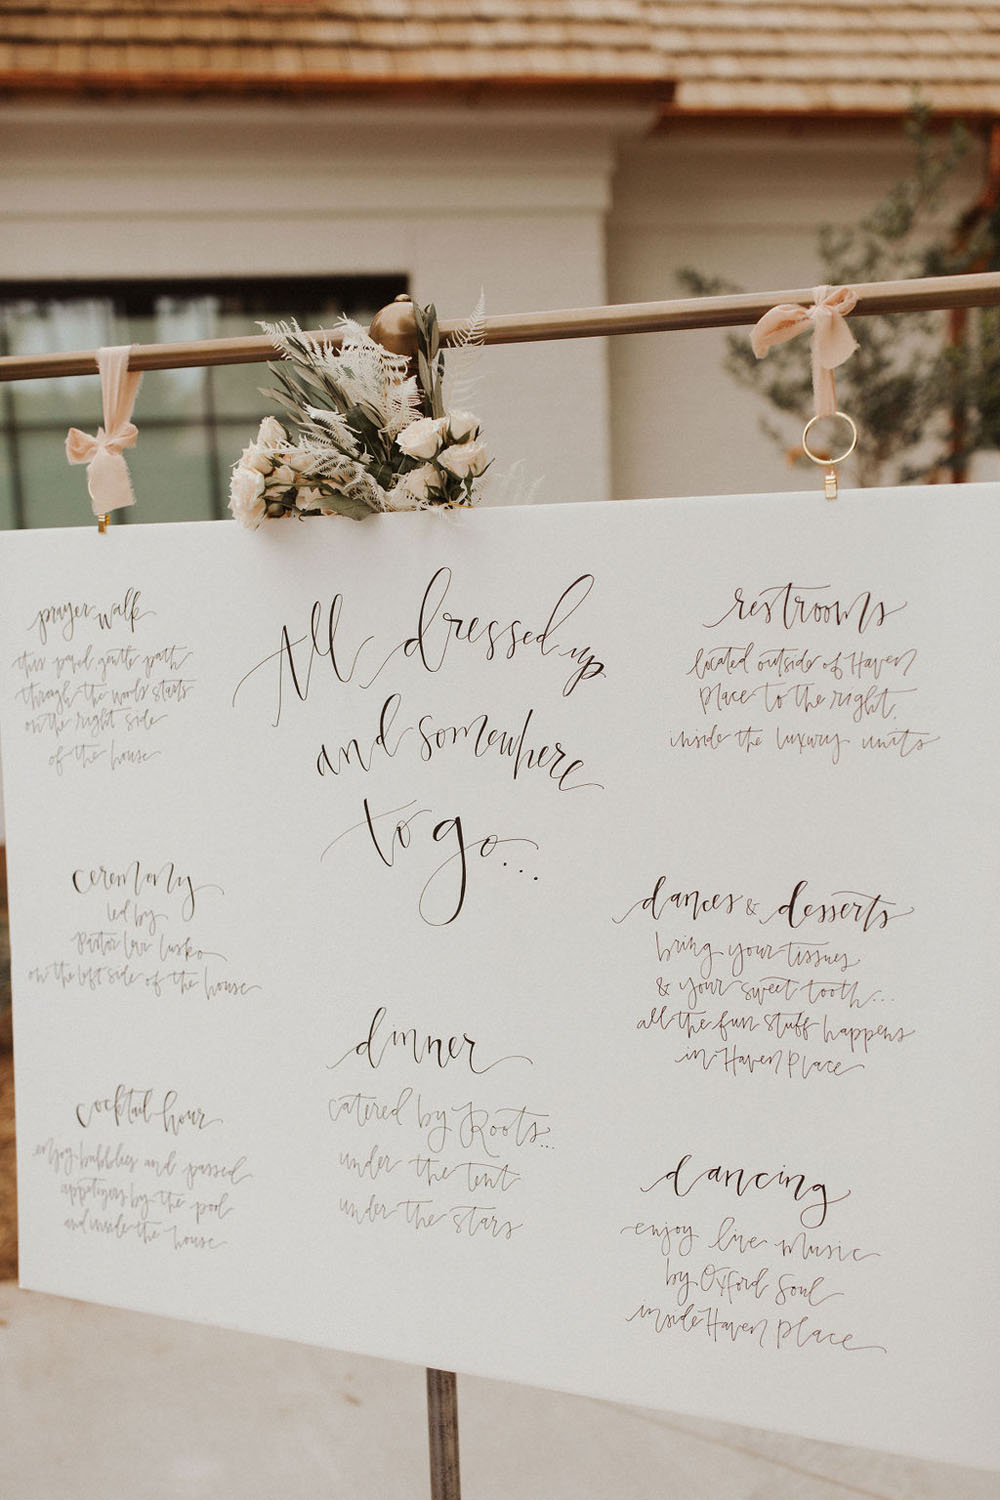 All dressed up
and somewhere
to go...
prayer walk
this paved gentle path
through the woods starts
on the right side
of the house
ceremony
led by
Pastor Levi Lusko
on the left side of the house
cocktail hour
enjoy bubbles and passed
appetizers by the pool
and inside the house
dinner
catered by Roots...
under the tent
under the stars
restrooms
located outside of Haven
Place to the right,
inside the luxury units
dances & desserts
bring your tissues
& your sweet tooth...
all the fun stuff happens
in Haven Place
dancing
enjoy live music
by Oxford Soul
inside Haven Place